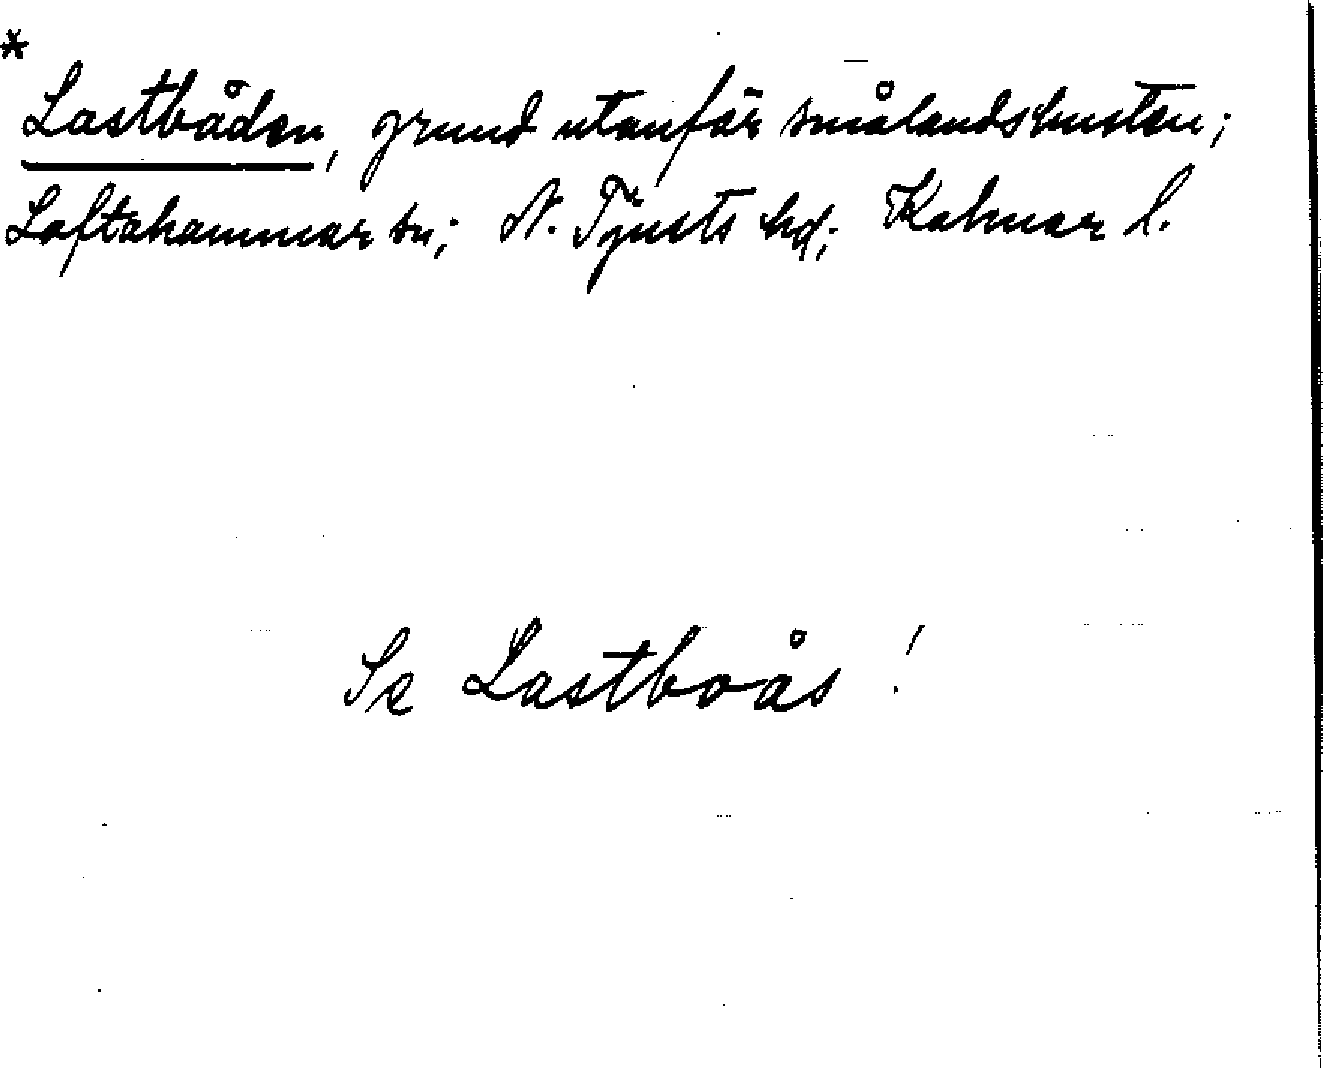 *
Lastbåden, grund utanför smålandskusten;
Loftahammar sn; N. Tjusts hd; Kalmar l.
Se Lastboås!